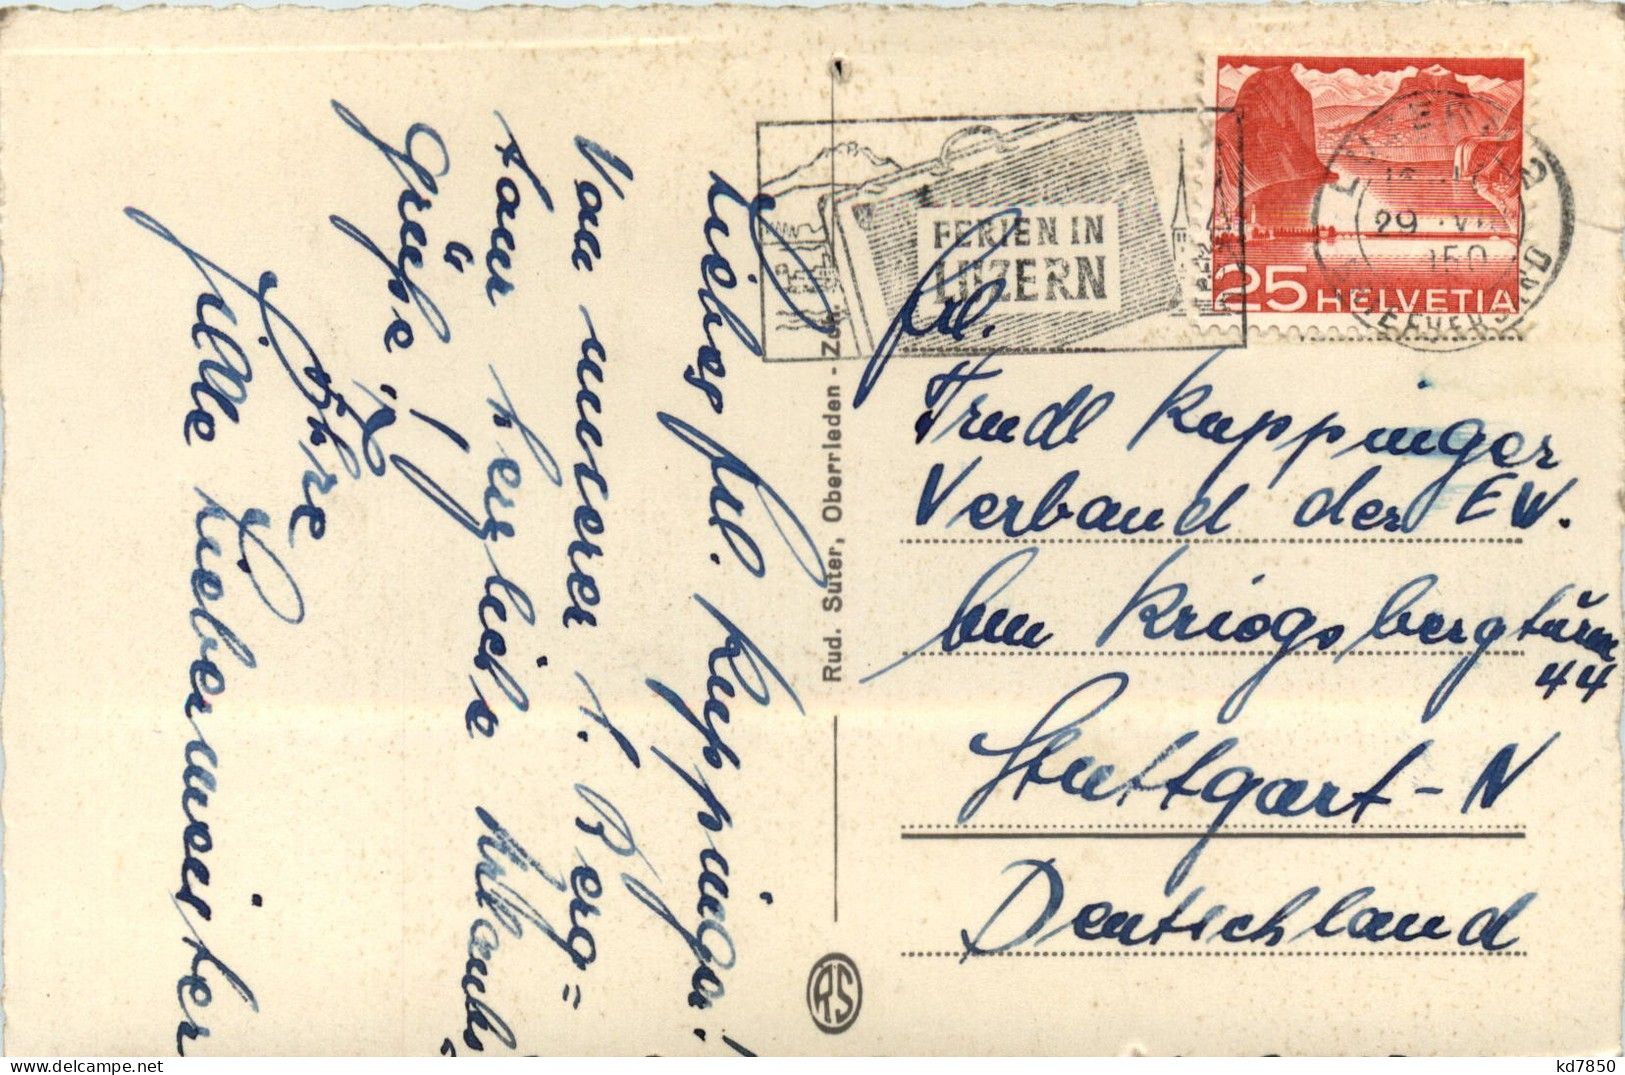 Liebes Frl. Kuppinger!
Von unserer 1. Berg=
tour herzliche Urlaubs
Grüße,
Ihre
Lilli Liebermeister
Rud. Suter, Oberrieden - Zch.
RS
FERIEN IN
LUZERN
LUZERN 2
29. VII
150
BRIEFVERSAND
25 HELVETIA
Frl.
Trudl Kuppinger
Verband der EW.
Am Kriegsbergturm
44
Stuttgart-N
Deutschland
kd7850